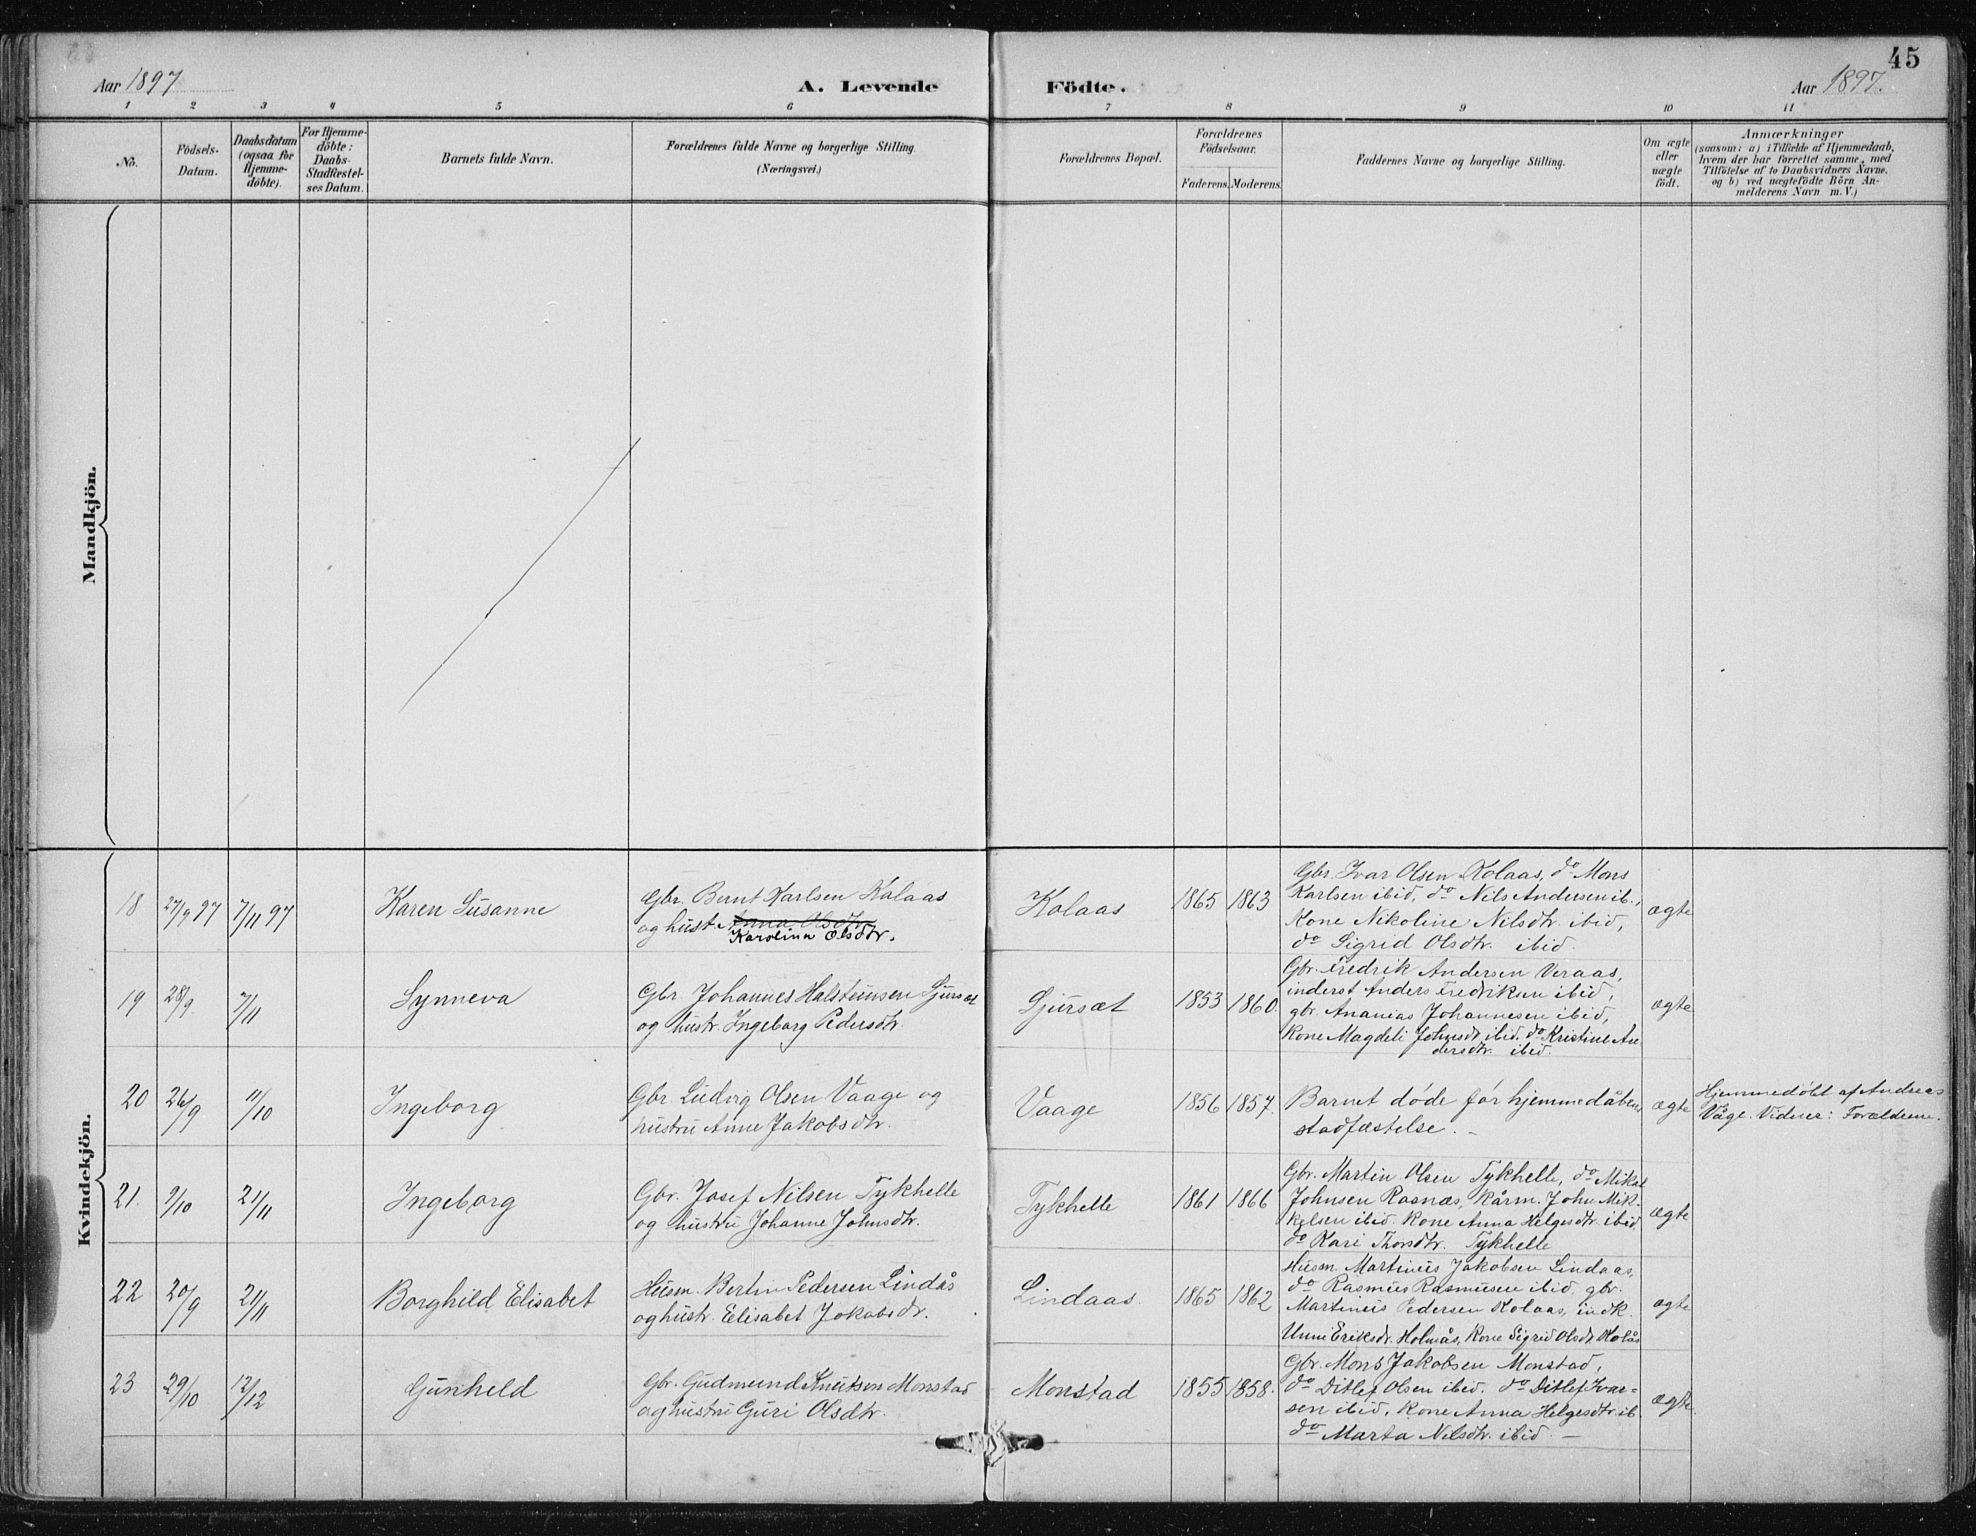 45
Aar 1897
A. Levende
Födte.
Aar 1897.
1 2 3 4 5 6 7 8 9 10 11
No.
Födsels-
Datum.
Daabsdatum
(ogsaa for
Hjemme-
döbte).
For Hjemme-
döbte:
Daabs-
Stadfæstel-
ses Datum.
Barnets fulde Navn.
Forældrenes fulde Navne og borgerlige Stilling.
(Næringsvei.)
Forældrenes Bopæl.
Forældrenes
Födselsaar.
Faderens. Moderens.
Faddernes Navne og borgerlige Stilling.
Om ægte
eller
uægte
födt.
Anmærkninger
(saasom: a) i Tilfælde af Hjemmedaab,
hvem der har forrettet samme, med
Tilföielse af to Daabsvidners Navne,
og b) ved uægtefödte Börn An-
melderens Navn m. V.)
Mandkjön.
Kvindekjön.
18 27/9 97 7/11 97 Karen Susanne
Gbr. Bernt Karlsen Kolaas
og hust. Anna Olsdtr.
Karolina Olsdtr.
Kolaas 1865 1863
Gbr. Ivar Olsen Kolaas, do Mons
Karlsen ibid, do Nils Andersen ib.,
Kone Nikoline Nilsdtr. ibid,
do Sigrid Olsdtr. ibid.
ægte
19 28/9. 7/11 Synneva
Gbr. Johannes Halstunsen Sjursæt
og hustr. Ingeborg Pedersdtr.
Sjursæt 1853 1860.
Gbr. Fredrik Andersen Veraas,
inderst Anders Fredriksen ibid,
gbr. Ananias Johannesen ibid,
Kone Magdeli Johnsdt. ibid. do Kristine An
dersdtr. ibid.
ægte
20 26/9 11/10 Ingeborg
Gbr. Ludvig Olsen Vaage og
hustru Anne Jakobsdtr.
Vaage 1856 1857.
Barnet døde før hjemmedåbens
stadfæstelse. –
ægte
Hjemmedöbt af Andreas
Våge. Vidner: Forældrene.
21. 9/10 21/11 Ingeborg
Gbr. Josef Nilsen Tykhelle
og hustru Johanne Johnsdtr.
Tykhelle 1861 1866
Gbr. Martin Olsen Tykhelle, do Mikal
Johnsen Rasnæs, kårm. John Mik-
kelsen ibid. Kone Anna Helgesdtr. ibid.
do Kari Thorsdtr. Tykhelle
ægte
22 20/9 21/11 Borghild Elisabet
Husm. Bertin Pedersen Lindås
og hustr. Elisabet Jakobsdr.
Lindaas. 1865 1862
Husm. Martinus Jakobsen Lindaas,
do Rasmus Rasmussen ibid. gbr.
Martinus Pedersen Kolaas, indk.
Unni Eriksdr. Holmås, Kone Sigrid Olsdr. Kolås
ægte
23 29/10 12/12 Gunheld
Gbr. Gudmund Knutsen Monstad
og hustru Guri Olsdtr.
Monstad 1855 1858.
Gbr. Mons Jakobsen Monstad,
do Ditlef Olsen ibid. do Ditlef Ivar-
sen ibid. Kone Anna Helgesdtr. ib.
do Marta Nilsdtr. ibid. –
ægte.